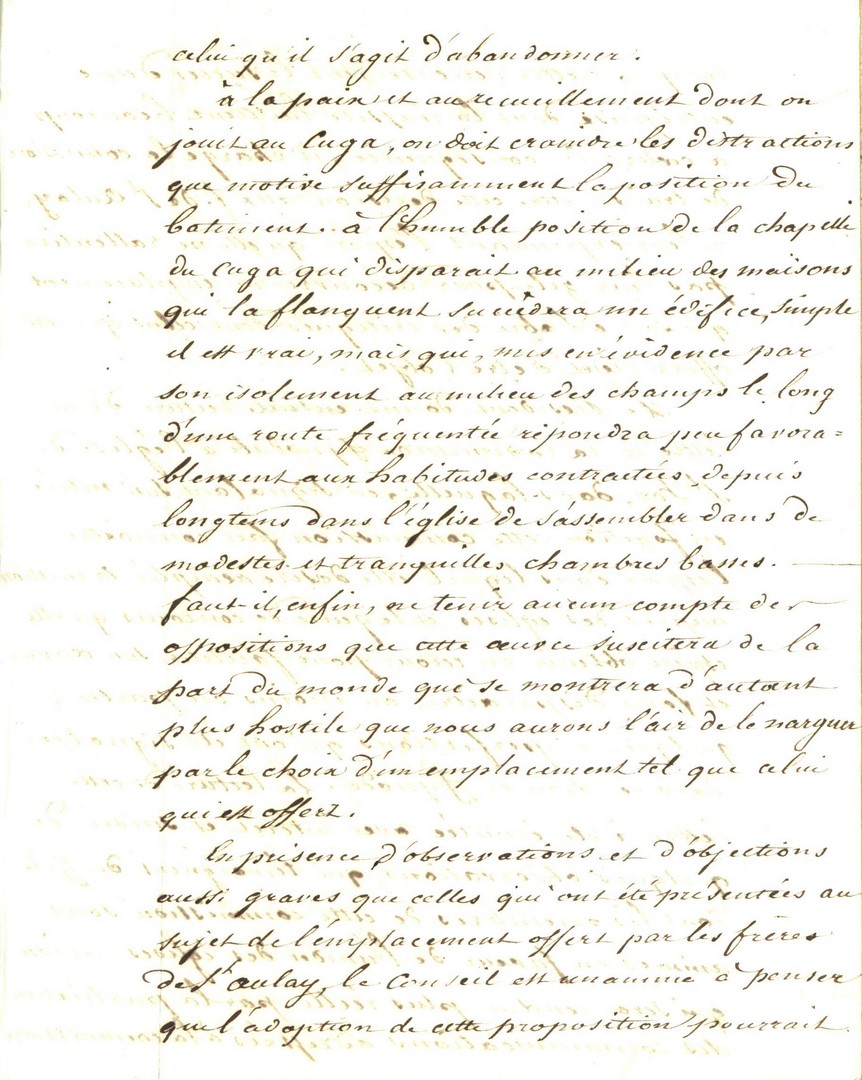 celui qu'il s'agit d'abandonner.
à la paix et au recueillement dont on
jouit au Cuga, on doit craindre les distractions
que motive suffisamment la position du
batiment. à l'humble position de la chapelle
du Cuga qui disparait au milieu des maisons
qui la flanquent succèdera un édifice, simple
il est vrai, mais qui, mis en évidence par
son isolement au milieu des champs le long
d'une route fréquentée répondra peu favora=
blement aux habitudes contractées depuis
longtems dans l'église de s'assembler dans de
modestes et tranquilles chambres basses.
faut-il, enfin, ne tenir aucun compte des
oppositions que cette œuvre suscitera de la
part du monde qui se montrera d'autant
plus hostile que nous aurons l'air de le narguer
par le choix d'un emplacement tel que celui
qui est offert.
En présence d'observations et d'objections
aussi graves que celles qui ont été présentées au
sujet de l'emplacement offert par les frères
de St aulay, le Conseil est unanime à penser
que l'adoption de cette proposition pourrait